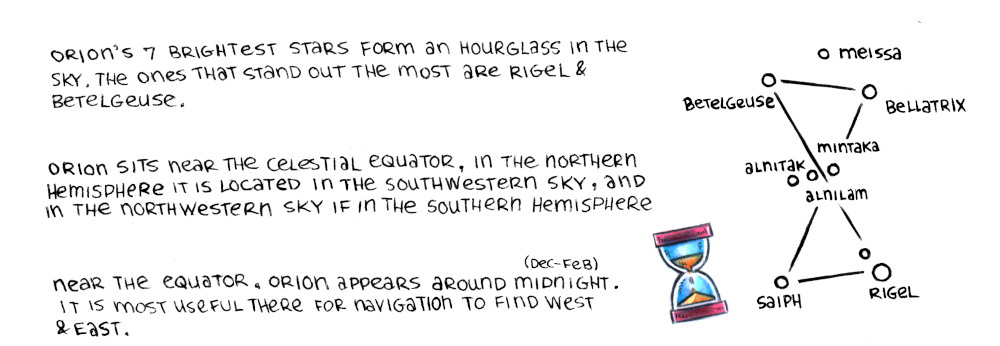 ORION'S 7 BRIGHTEST STARS FORM an HOURGLASS IN THE
SKY. THE ones THAT STAND OUT THE MOST are RIGEL &
BETELGEUSE.
ORION SITS near THE CELESTIAL EQUATOR, IN THE NORTHERN
HEMISPHERE IT IS LOCATED IN THE SOUTHWESTERN SKY, AND
IN THE NORTHWESTERN SKY IF IN THE SOUTHERN HEMISPHERE
(DEC-FEB)
near THE EQUATOR, ORION APPEARS AROUND MIDNIGHT.
IT IS MOST USEFUL THERE FOR NAVIGATION TO FIND WEST
& EAST.
meissa
BETELGEUSE
BELLATRIX
mINTAKA
ALNITAK
ALNILAM
SAIPH
RIGEL